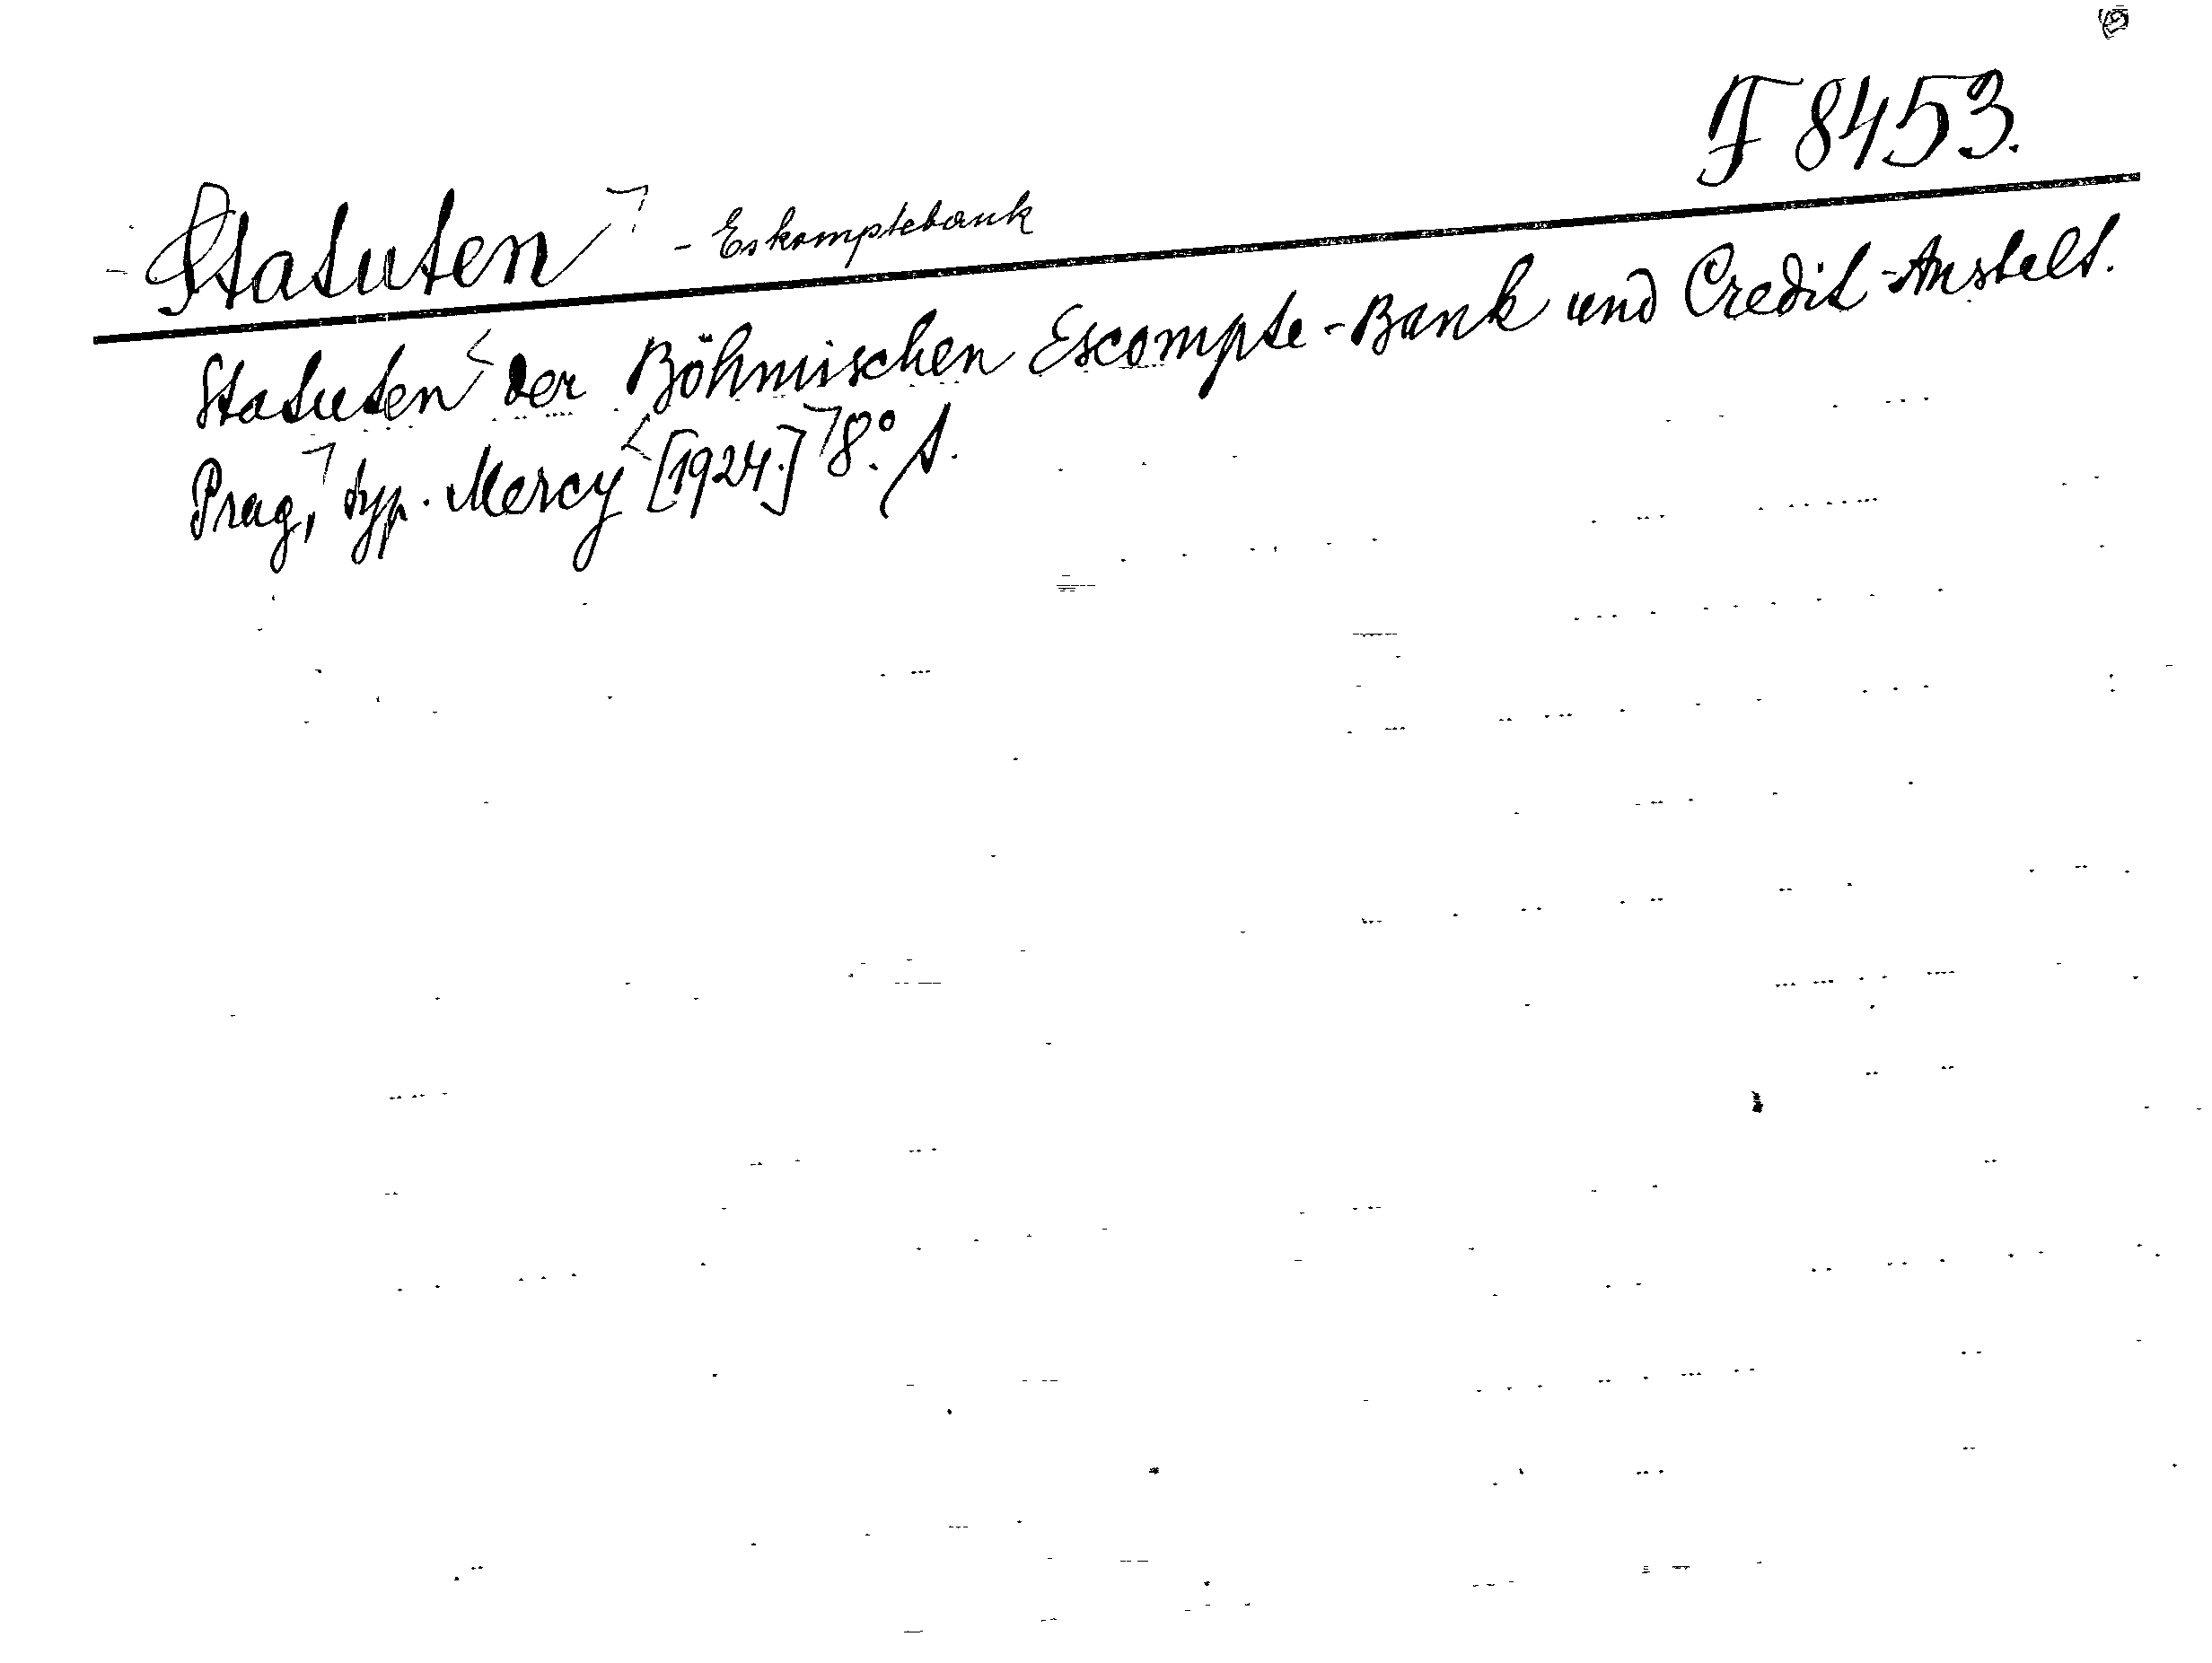 F 8453.
Statuten - Eskomptebank
Statuten der Böhmischen Escompte-Bank und Credit-Anstalt.
Prag, typ. Mercy [1924.] 8.° s.